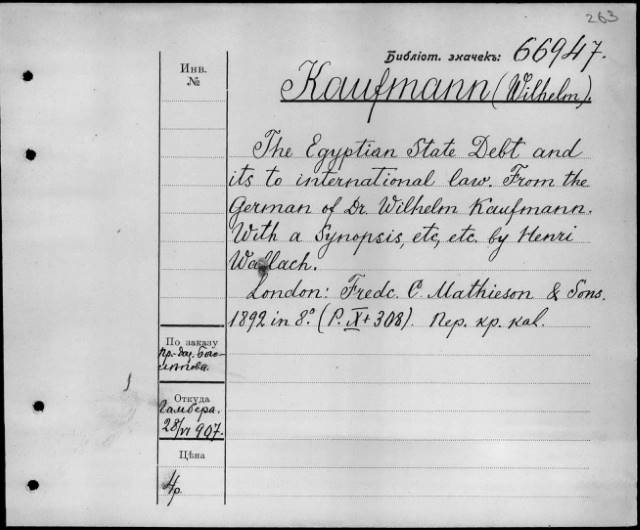 263
Библіот. значекъ: 66947.
Kaufmann (Wilhelm).
Инв.
№
The Egyptian State Debt and
its to international law. From the
German of Dr. Wilhelm Kaufmann.
With a Synopsis, etc, etc. by Henri
Wallach.
London: Fredc. C. Mathieson & Sons.
1892 in 8º. (P. IX + 308). Пер. кр. кал.
По заказу
пр.-доц.
Откуда
Гамбера.
28/VI 907.
Цѣна
4р.